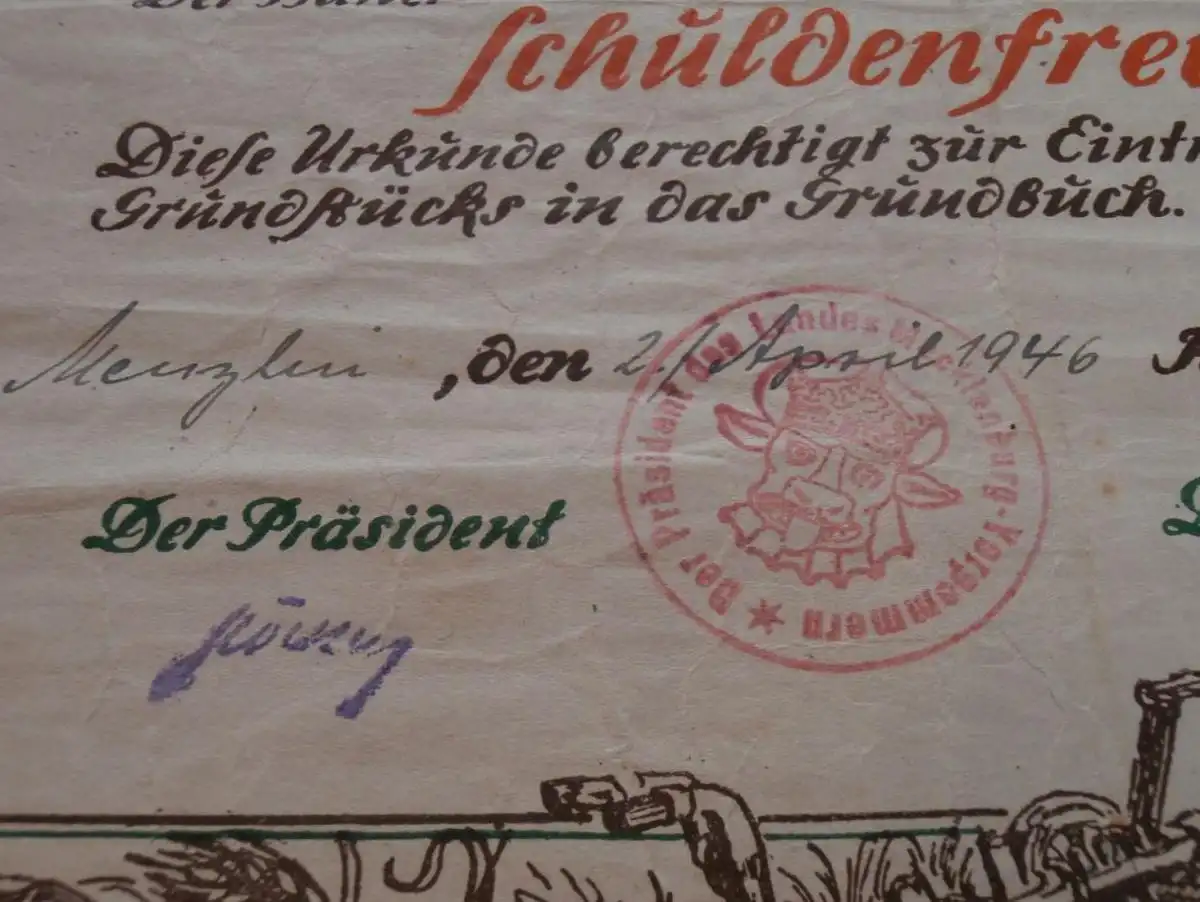 schuldenfrei
Diese Urkunde berechtigt zur Eintr
Grundstücks in das Grundbuch.
Menzlin, den 2. April 1946
Der Präsident des Landes Mecklenburg-Vorpommern
Der Präsident